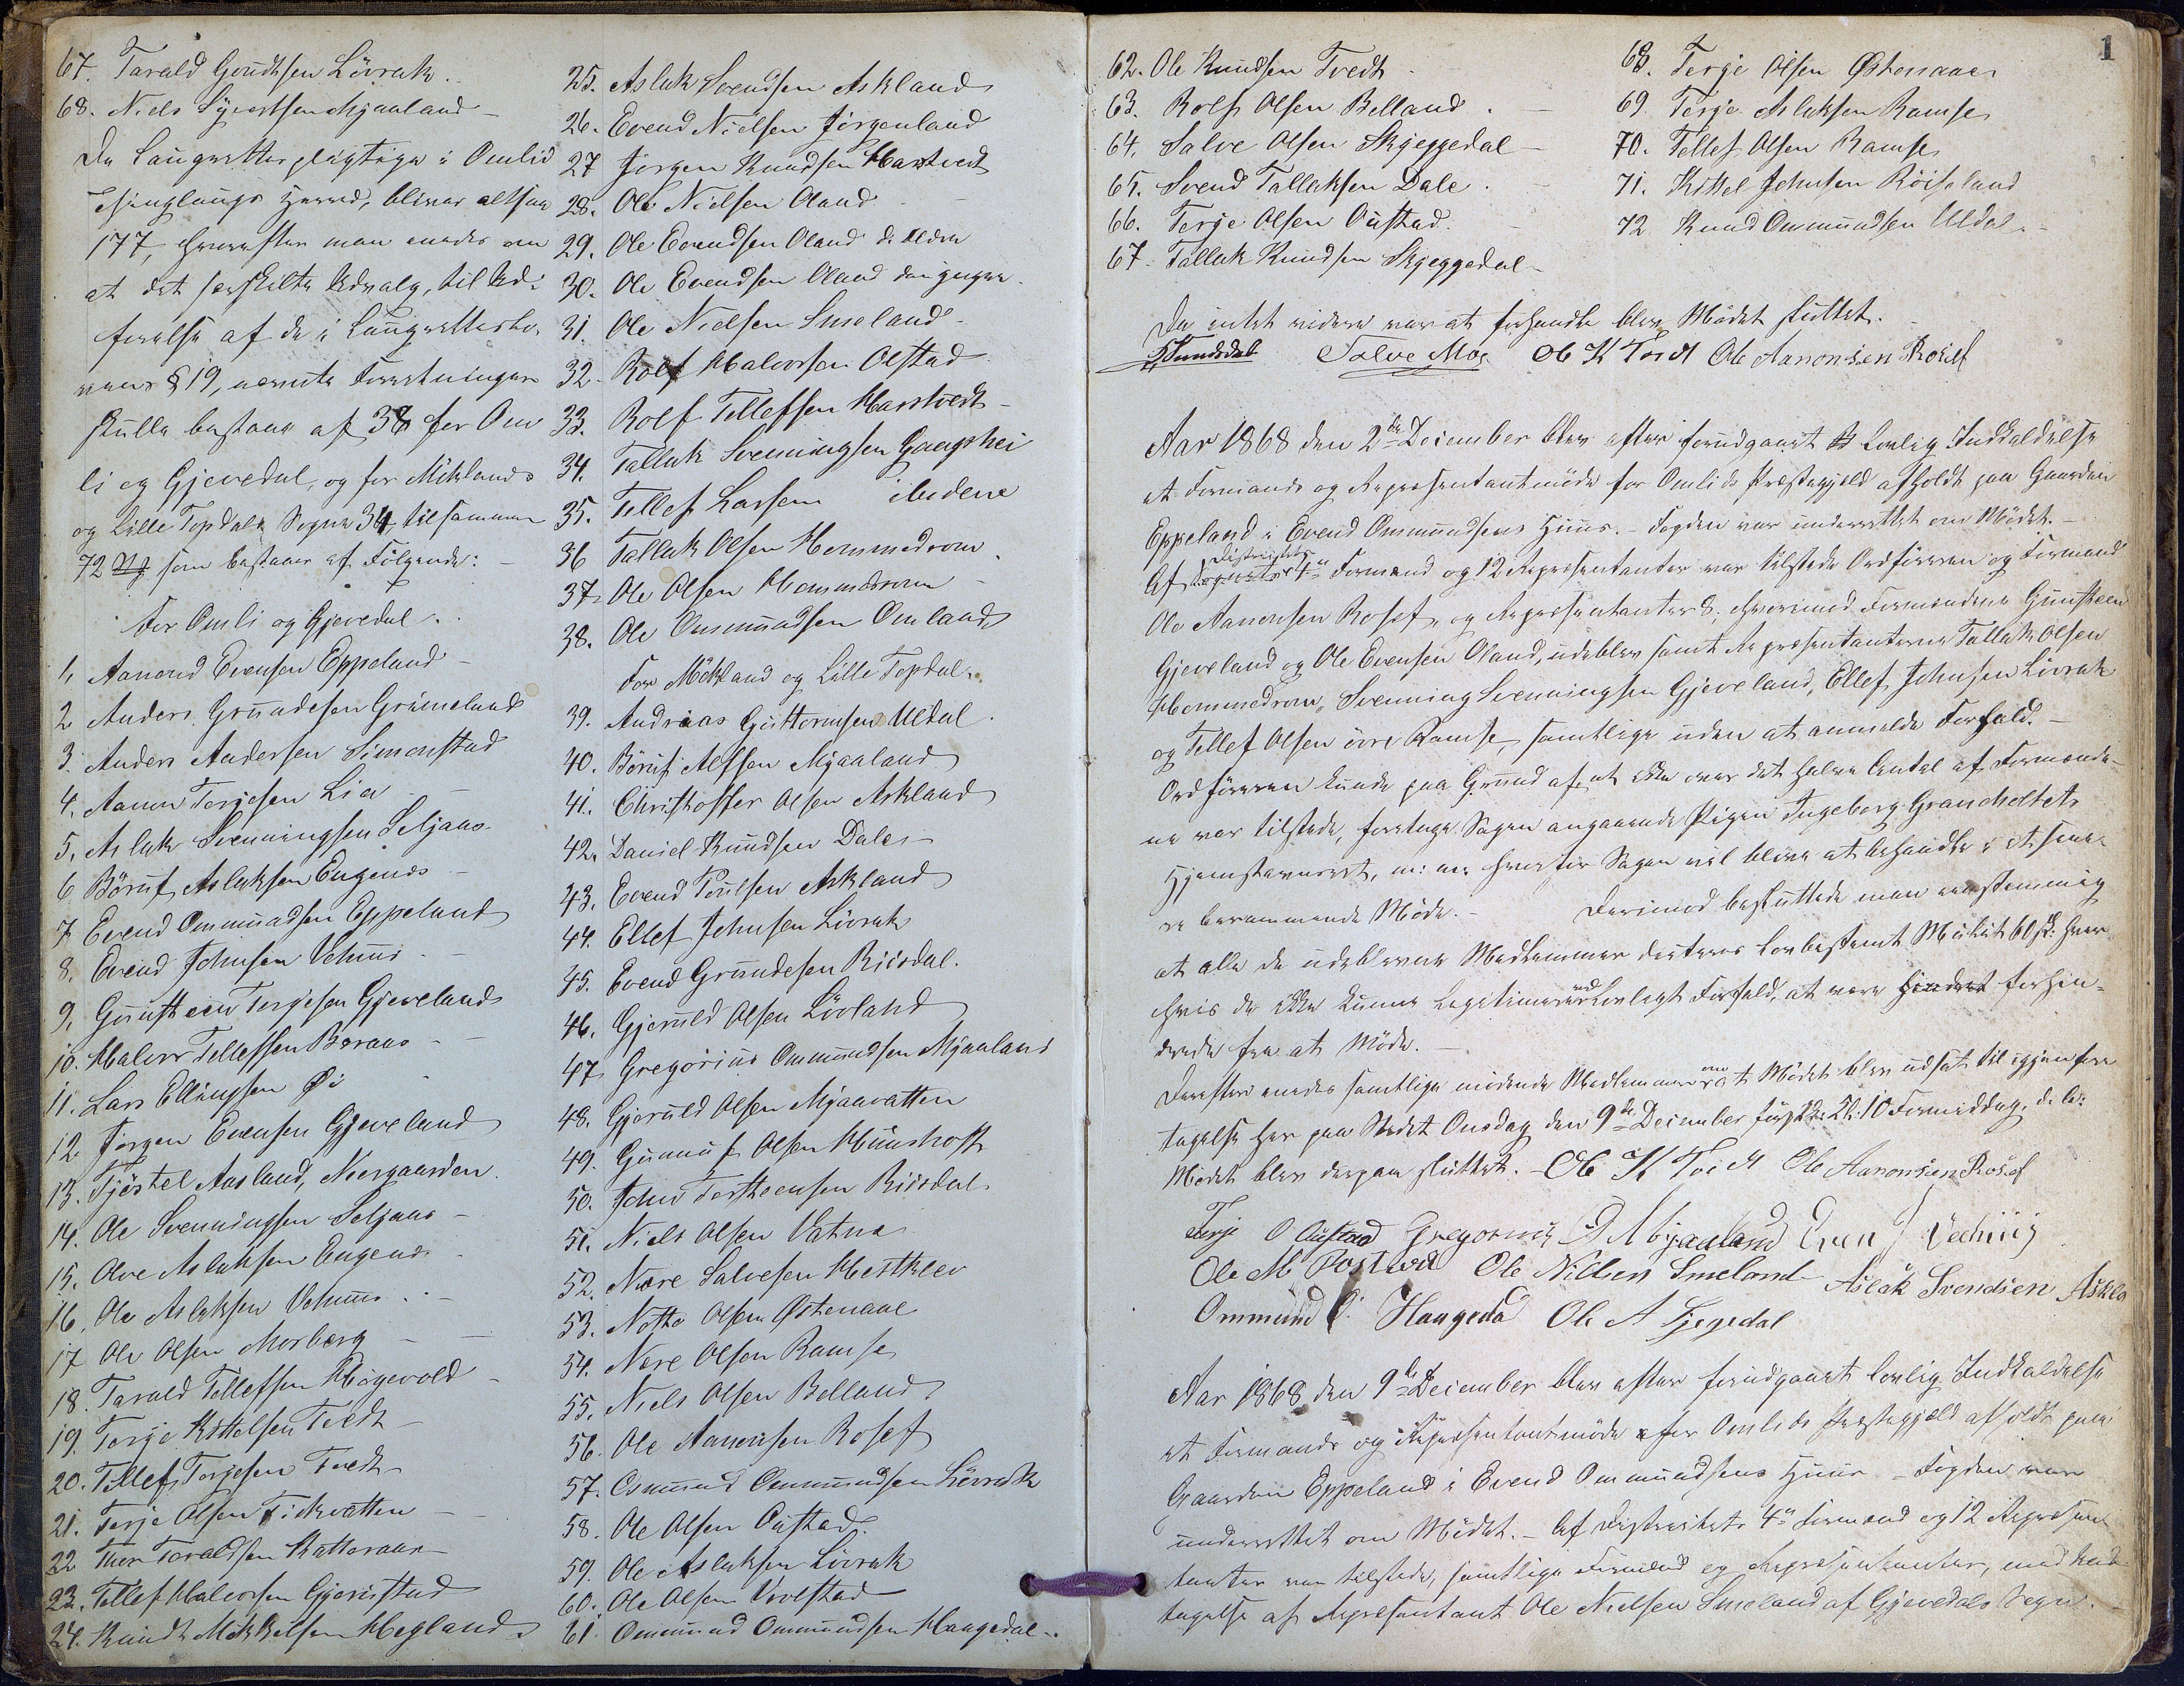 67. Tarald Gundtsen Lövrak.
68. Niels Syvertsen Mjaaland
De Laugrettespligtige i Omlid
Thinglaugs Herred, bliver altsaa
177, hvorefter man enedes om
at det særskilte Udvalg, til Ud-
førelse af de i Laugretteslo-
vens § 19, nævnte Forretninger
skulle bestaae af 38 for Om
li og Gjevedal, og for Mÿklands
og Lille Topdals Sogne 34 tilsammen
72 som bestaaer af Følgende:
For Omli og Gjevedal.
1, Aanond Evensen Eppeland
2 Anders Grundesen Grimeland
3. Anders Andersen Simonstad
4, Aanon Terjesen Lia
5, Aslak Svenningsen Seljaas
6 Börüf Aslaksen Engenes
7 Evend Ommundsen Eppeland
8. Evend Johnsen Vehuus
9, Gunsteen Terjesen Gjeveland
10. Halvor Tellefsen Baraas
11. Lars Ellingsen Øi
12 Jørgen Evensen Gjeveland
13. Tjöstel Aasland, Neergaarden
14. Ole Svenningsen Seljaas
15, Olve Aslaksen Engenes
16, Ole Aslaksen Vehuus
17 Ole Olsen Morberg
18. Tarald Tellefsen Högevold
19. Terje Kittelsen Tvedt
20. Tellef Terjesen Tvedt
21. Terje Olsen Fiskvatten
22 Thor Taraldsen Katteraas
23. Tellef Halvorsen Gjerustad
24. Knudt Mikkelsen Hegland
25. Aslak Svendsen Askland
26. Evend Nielsen Jörgenland
27 Jörgen Knudsen Hartvedt
28. Ole Nielsen Oland
29. Ole Evendsen Oland d. ældre
30. Ole Evendsen Oland den yngre
31. Ole Nielsen Smeland
32. Rolf Halvorsen Olstad
33. Rolf Tellefsen Hartvedt
34. Tallak Svenningsen Gangshei
35. Tellef Larsen ibidene
36 Tallak Olsen Hommedrom
37. Ole Olsen Hommedrom
38. Ole Ommundsen Omland
For Mÿkland og Lille Topdal.
39. Andreas Guttormsen Uldal
40. Börüf Alfsen Mjaaland
41. Christoffer Olsen Askland
42. Daniel Knudsen Dale
43. Evend Poulsen Askland
44. Ellef Johnsen Lövrak
45. Evend Grundesen Riisdal.
46. Gjeruld Olsen Lövland
47 Gregorius Ommundsen Mjaaland
48. Gjeruld Olsen Mjaavatten
49. Gunnuf Olsen Hunshoft
50. John Torsteensen Riisdal
51. Niels Olsen Vatne
52. Nære Salvesen Hestklev
53. Notto Olsen Østenaae
54. Nære Olsen Ramse
55. Niels Olsen Belland
56. Ole Aanonsen Rosef
57. Osmund Ommundsen Lövrak
58. Ole Olsen Oustad
59. Ole Aslaksen Lövrak
60. Ole Olsen Vovstad
61 Ommund Ommundsen Haugedal
1
62. Ole Knudsen Tvedt
63. Rolf Olsen Belland
64, Salve Olsen Skjeggedal
65. Svend Tallaksen Dale
66. Terje Olsen Oustad
67. Tallak Knudsen Skjeggedal
68. Terje Olsen Østenaae
69 Terje Aslaksen Ramse
70. Tellef Olsen Ramse
71. Kittel Johnsen Röiseland
72 Knud Ommundsen Uldal
Da intet videre var at forhandle blev Mödet sluttet.
Salve Moe Ole K Tvedt Ole Aanonsen Rosef
Aar 1868 den 2de December blev efter forudgaaet Lovlig Indkaldelse
et Formands og Repræsentantmöde for Omlids Præstegjeld afholdt paa Gaarden
Eppeland i Evend Ommundsens Huus. - Fogden var underrettet om Mödet. -
Af Distriktets 4re Formænd og 12 Repræsentanter var tilstede Ordföreren og Formand
Ole Aanonsen Rosef, og Repræsentanter 8, hvorimod Formændene Gunsteen
Gjeveland og Ole Evensen Oland, udeblev samt Repræsentanterne Tallak Olsen
Hommedrom, Svenning Svenningsen Gjeveland, Ellef Johnsen Lövrak
og Tellef Olsen övre Ramse, samtlige uden at anmelde Forfald. -
Ordföreren kunde paa Grund af, at ikke over det halve Antal af Formænde-
ne var tilstede, foretage Sagen angaaende Pigen Ingeborg Grandholts
Hjemstavnsret, m: m: hvorfor Sagen vil blive at behandle i et sene-
re berammende Möde. - Derimod besluttede man eenstemmig
at alle de udeblevne Medlemmer dicteres lovbestemt Mulkt 60 s: hver
hvis de ikke kunne legitimere ved lovligt Forfald, at være forhin-
drede fra at Möde. -
Derefter enedes samtlige mödende Medlemmer om at Mödet blev udsat til igjenfore
tagelse her paa Stedet Onsdag den 9de December förstk: Kl: 10 Formiddag. d. l:
Mödet blev derpaa sluttet. - Ole K Tvedt Ole Aanonsen Rosef
Terje O Oustad Gregorius O Mjaaland Even J Veehuus
Ole Nilsen Smeland Aslak Svendsen Askla
Ommund O. Haugeda Ole A
Aar 1868 den 9de December blev efter forudgaaet lovlig Indkaldelse
et Formands og Repræsentantmöde for Omlids Præstegjæld afholdt paa
Gaarden Eppeland i Evend Ommundsens Huus - Fogden var
underrettet om Mödet. - Af Distriktets 4re Formænd og 12 Repræsen
tanter var tilstede, samtlige Formænd og Repræsentanter, med Und
tagelse af Repræsentant Ole Nielsen Smeland af Gjevedals Sogn. -